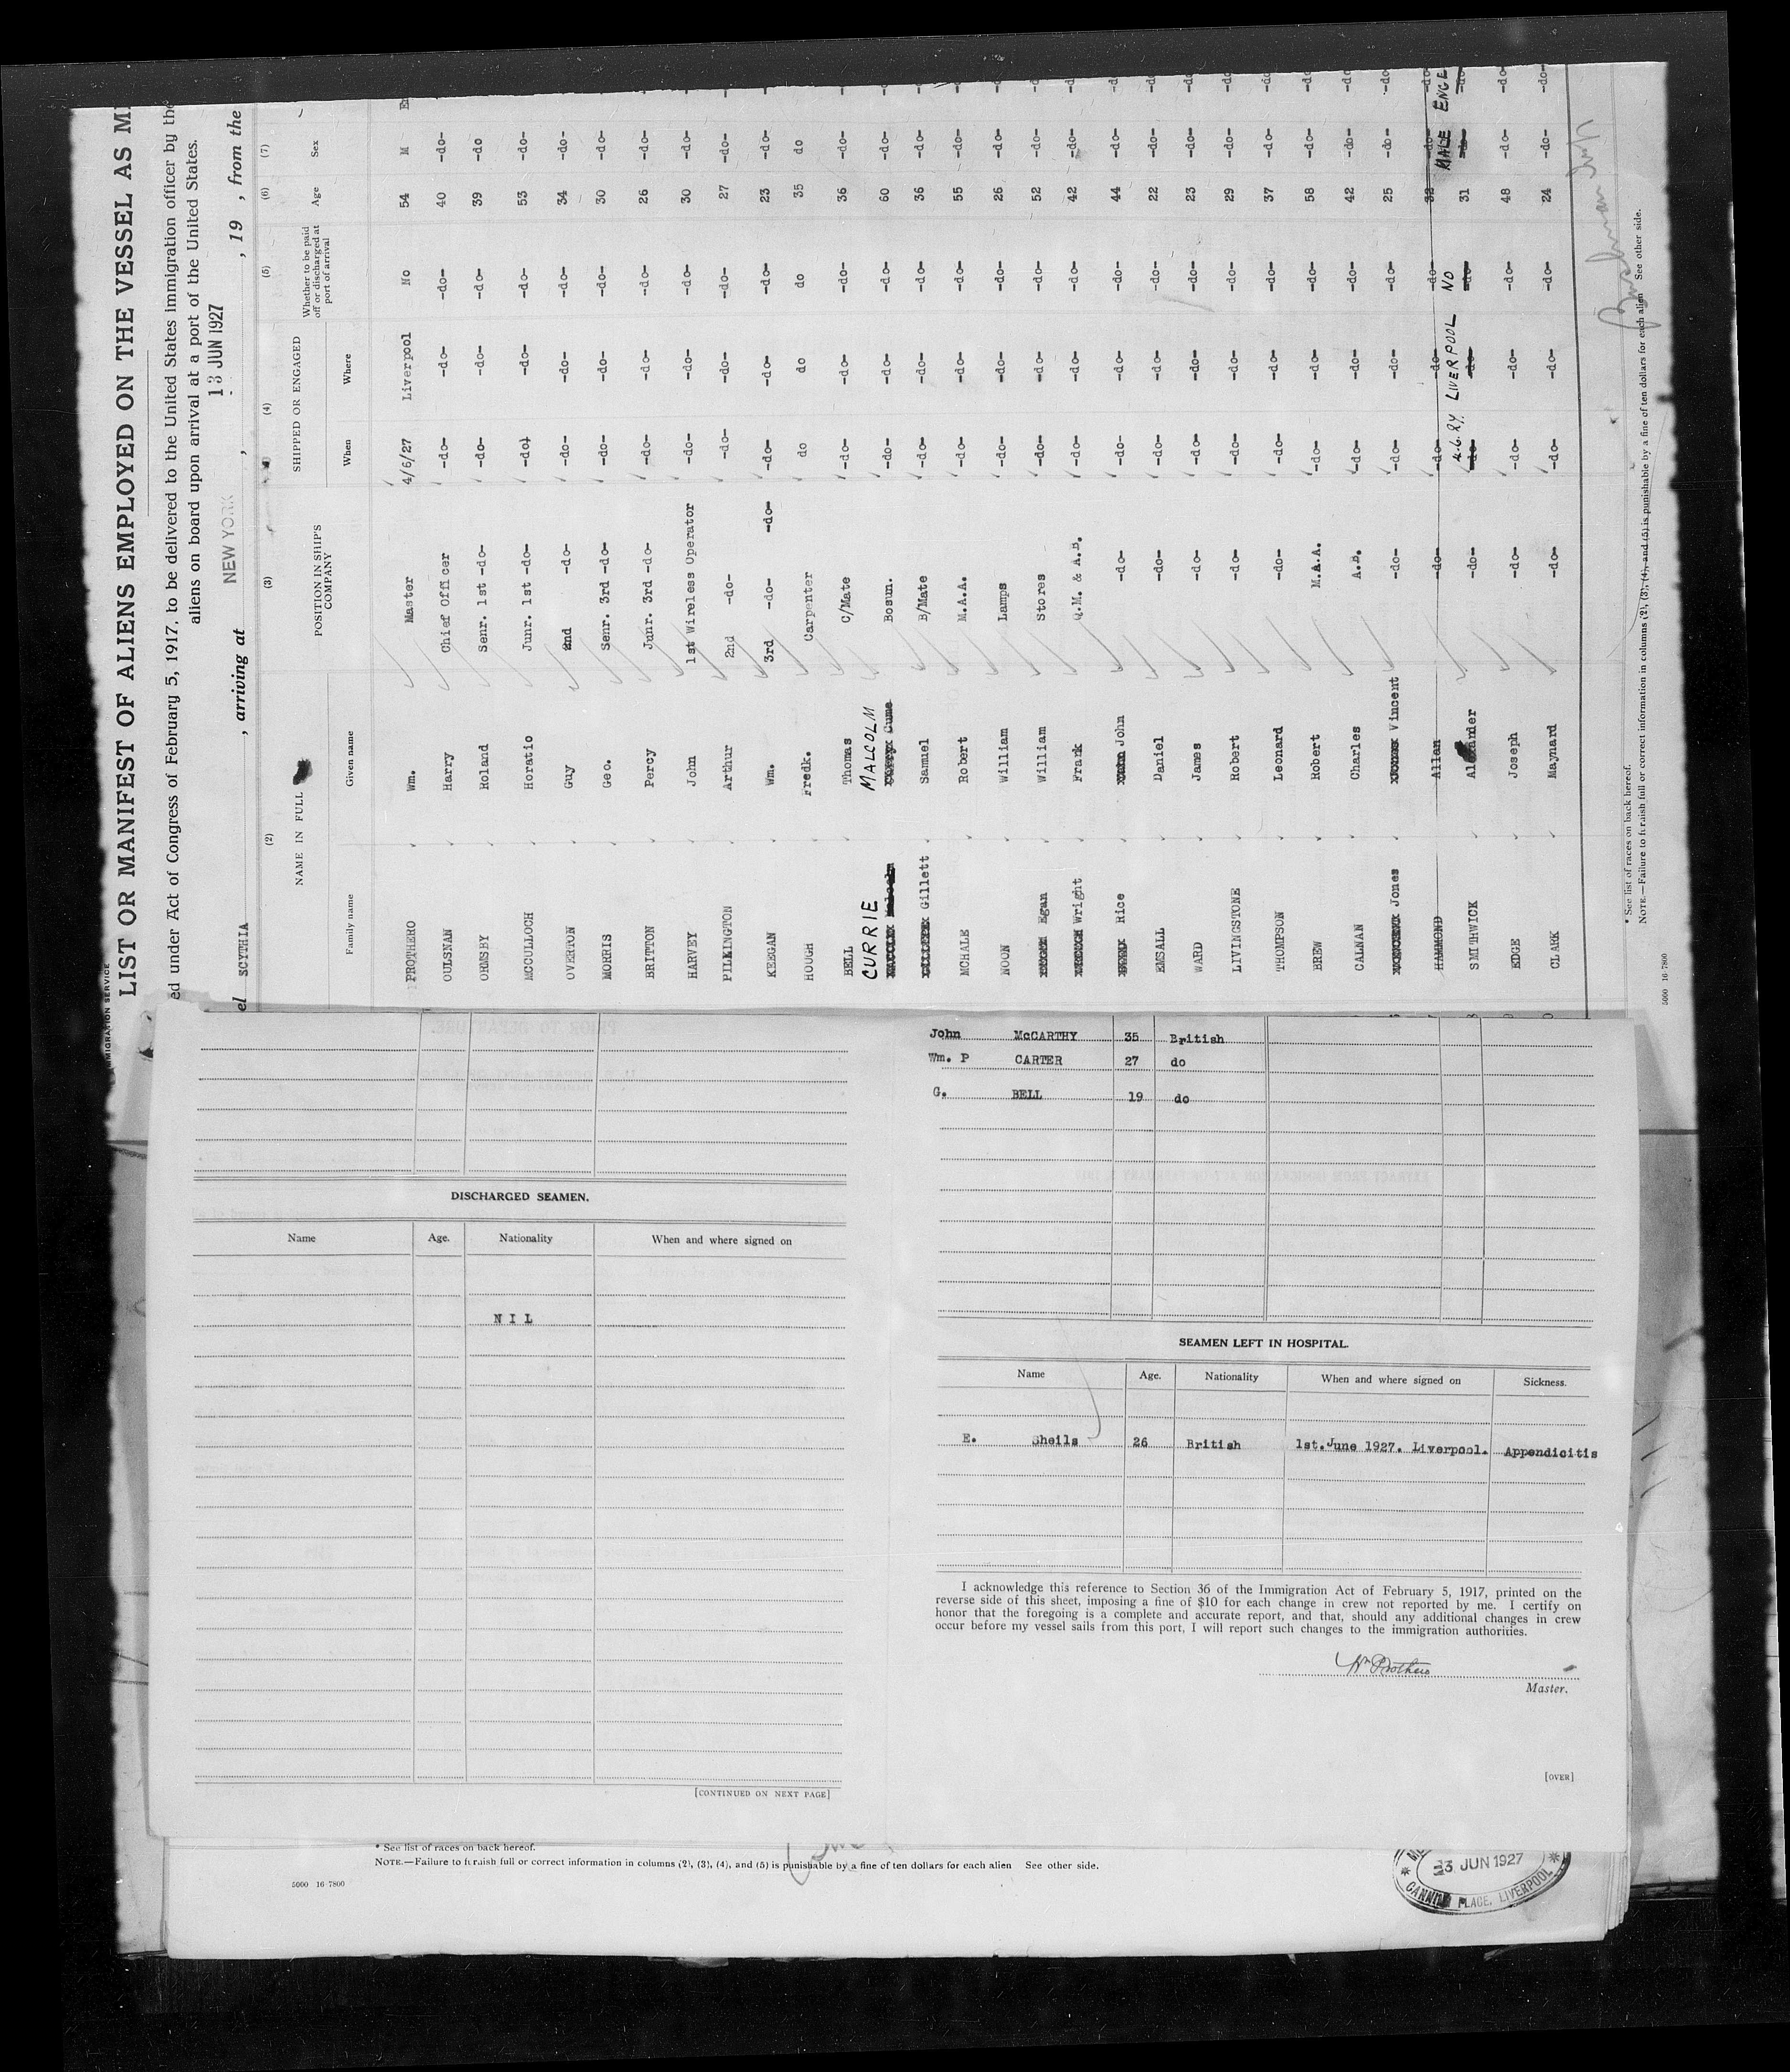 MIGRATION SERVICE
LIST OR MANIFEST OF ALIENS EMPLOYED ON THE VESSEL AS M
ed under Act of Congress of February 5, 1917, to be delivered to the United States immigration officer by the
aliens on board upon arrival at a port of the United States.
el SCYTHIA , arriving at NEW YORK , 13 JUN 1927 , 19 , from the
(2) (3) (4) (5) (6) (7)
NAME IN FULL POSITION IN SHIP'S COMPANY SHIPPED OR ENGAGED Whether to be paid off or discharged at port of arrival Age Sex
Family name Given name When Where
PROTHERO Wm. Master 4/6/27 Liverpool No 54 M En
OULSNAN Harry Chief Officer -do- -do- -do- 40 -do- -do-
ORMSBY Roland Senr. 1st -do- -do- -do- -do- 39 -do -do-
MCCULLOCH Horatio Junr. 1st -do- -do- -do- -do- 53 -do- -do-
OVERTON Guy 2nd -do- -do- -do- -do- 34 -do- -do-
MORRIS Geo. Senr. 3rd -do- -do- -do- -do- 30 -do- -do-
BRITTON Percy Junr. 3rd -do- -do- -do- -do- 26 -do-
HARVEY John 1st Wireless Operator -do- -do- -do- 30 -do-
PILKINGTON Arthur 2nd -do- -do- -do- -do- 27 -do-
KEEGAN Wm. 3rd -do- -do- -do- -do- -do- 23 -do-
HOUGH Fredk. Carpenter do do do 35 do
BELL Thomas C/Mate -do- -do- -do- 36 -do- -do-
CURRIE MALCOLM Bosun. -do- -do- -do- 60 -do- -do-
Gillett Samuel B/Mate -do- -do- -do- 36 -do- -do-
MCHALE Robert M.A.A. -do- -do- -do- 55 -do- -do-
NOON William Lamps -do- -do- -do- 26 -do- -do-
Egan William Stores -do- -do- -do- 52 -do- -do-
Wright Frank Q.M. & A.B. -do- -do- -do- 42 -do- -do-
Rice John -do- -do- -do- -do- 44 -do- -do-
EMSALL Daniel -do- -do- -do- -do- 22 -do- -do-
WARD James -do- -do- -do- -do- 23 -do- -do-
LIVINGSTONE Robert -do- -do- -do- -do- 29 -do- -do-
THOMPSON Leonard -do- -do- -do- -do- 37 -do- -do-
BREW Robert M.A.A. -do- -do- -do- 58 -do- -do-
CALNAN Charles A.B. -do- -do- -do- 42 -do- -do-
Jones Vincent -do- -do- -do- -do- 25 -do- -do-
HAMMOND Allan -do- -do- -do- -do- 32 -do- -do-
4.6.27. LIVERPOOL NO MALE ENGL
SMITHWICK Alexander -do- -do- -do- -do- 31 -do- -do-
EDGE Joseph -do- -do- -do- -do- 48 -do- -do-
CLARK Maynard -do- -do- -do- -do- 24 -do- -do-
* See list of races on back hereof.
NOTE.—Failure to furnish full or correct information in columns (2), (3), (4), and (5) is punishable by a fine of ten dollars for each alien See other side.
5000 16-7800
DISCHARGED SEAMEN.
Name Age. Nationality When and where signed on
NIL
[CONTINUED ON NEXT PAGE]
John McCARTHY 35 British
Wm. P CARTER 27 do
G. BELL 19 do
SEAMEN LEFT IN HOSPITAL.
Name Age. Nationality When and where signed on Sickness.
E. Sheils 26 British 1st.June 1927. Liverpool. Appendicitis
I acknowledge this reference to Section 36 of the Immigration Act of February 5, 1917, printed on the
reverse side of this sheet, imposing a fine of $10 for each change in crew not reported by me. I certify on
honor that the foregoing is a complete and accurate report, and that, should any additional changes in crew
occur before my vessel sails from this port, I will report such changes to the immigration authorities.
Wm Prothero
Master.
[OVER]
* See list of races on back hereof.
NOTE.—Failure to furnish full or correct information in columns (2), (3), (4), and (5) is punishable by a fine of ten dollars for each alien See other side.
5000 16-7800
3 JUN 1927
CANNING PLACE, LIVERPOOL